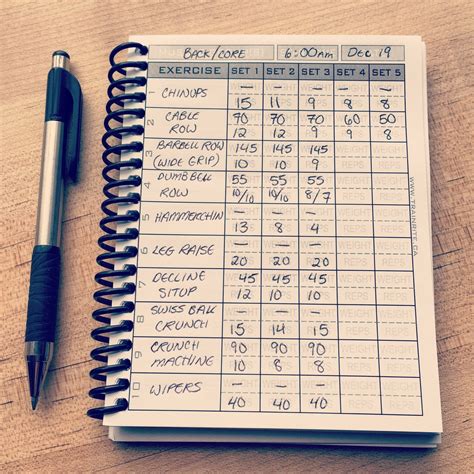 BACK/CORE 6:00am DEC 19
EXERCISE SET 1 SET 2 SET 3 SET 4 SET 5
1 CHINUPS – – – – –
15 11 9 8 8
2 CABLE ROW 70 70 70 60 50
12 12 9 9 8
3 BARBELL ROW (WIDE GRIP) 145 145 145
10 10 9
4 DUMBBELL ROW 55 55 55
10/10 10/10 8/7
5 HAMMERCHIN – – –
13 8 4
6 LEG RAISE – – –
20 20 20
7 DECLINE SITUP 45 45 45
12 10 10
8 SWISS BALL CRUNCH – – –
15 14 15
9 CRUNCH MACHINE 90 90 90
10 8 8
10 WIPERS – – –
40 40 40
WWW.TRAINRITE.CA